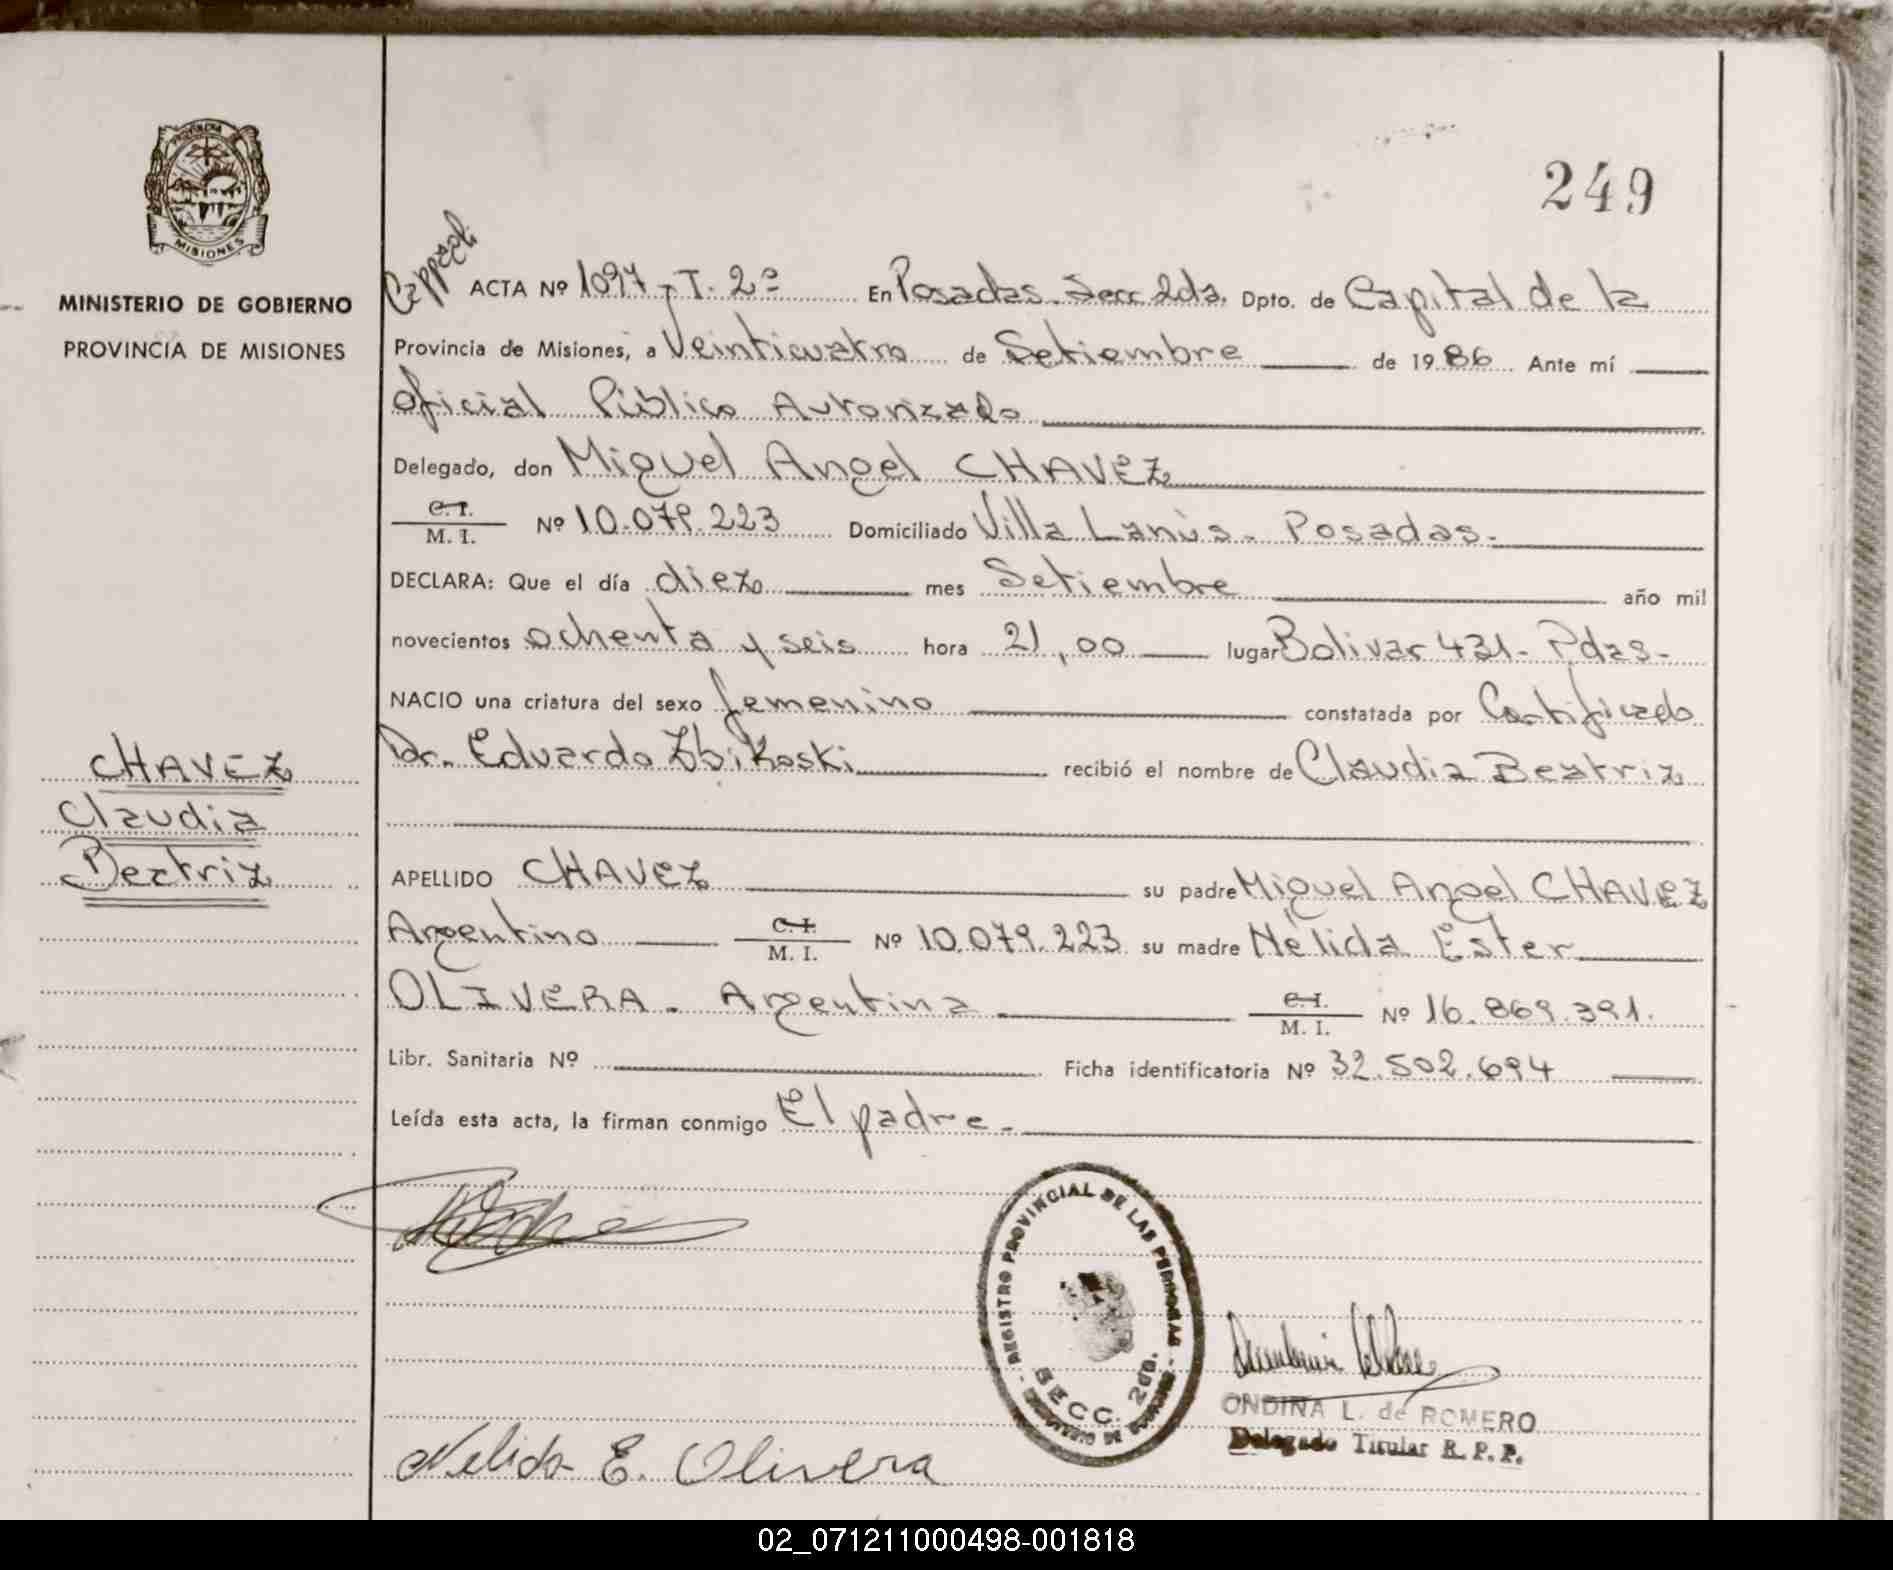 249
PROVINCIA DE
MISIONES
MINISTERIO DE GOBIERNO
PROVINCIA DE MISIONES
ACTA Nº 1097 - T. 2º En Posadas. Secc 2da. Dpto. de Capital de la
Provincia de Misiones, a Veinticuatro de Setiembre de 19 86 Ante mí
Oficial Público Autorizado
Delegado, don Miguel Angel CHAVEZ
C. I.
M. I. Nº 10.079.223 Domiciliado Villa Lanús - Posadas.
DECLARA: Que el día diez mes Setiembre año mil
novecientos ochenta y seis hora 21,00 lugar Bolivar 431 - Pdas -
NACIO una criatura del sexo femenino constatada por Certificado
Dr. Eduardo Zbikoski recibió el nombre de Claudia Beatriz
CHAVEZ
Claudia
Beatriz
APELLIDO CHAVEZ su padre Miguel Angel CHAVEZ
Argentino C. I. M. I. Nº 10.079.223 su madre Nélida Ester
OLIVERA. Argentina C. I. M. I. Nº 16.869.391.
Libr. Sanitaria Nº Ficha identificatoria Nº 32.502.694
Leída esta acta, la firman conmigo El padre.
REGISTRO PROVINCIAL DE LAS PERSONAS
SECC. 2DA.
ONDINA L. de ROMERO
Delegado Titular R. P. P.
Nelida E. Olivera
02_071211000498-001818